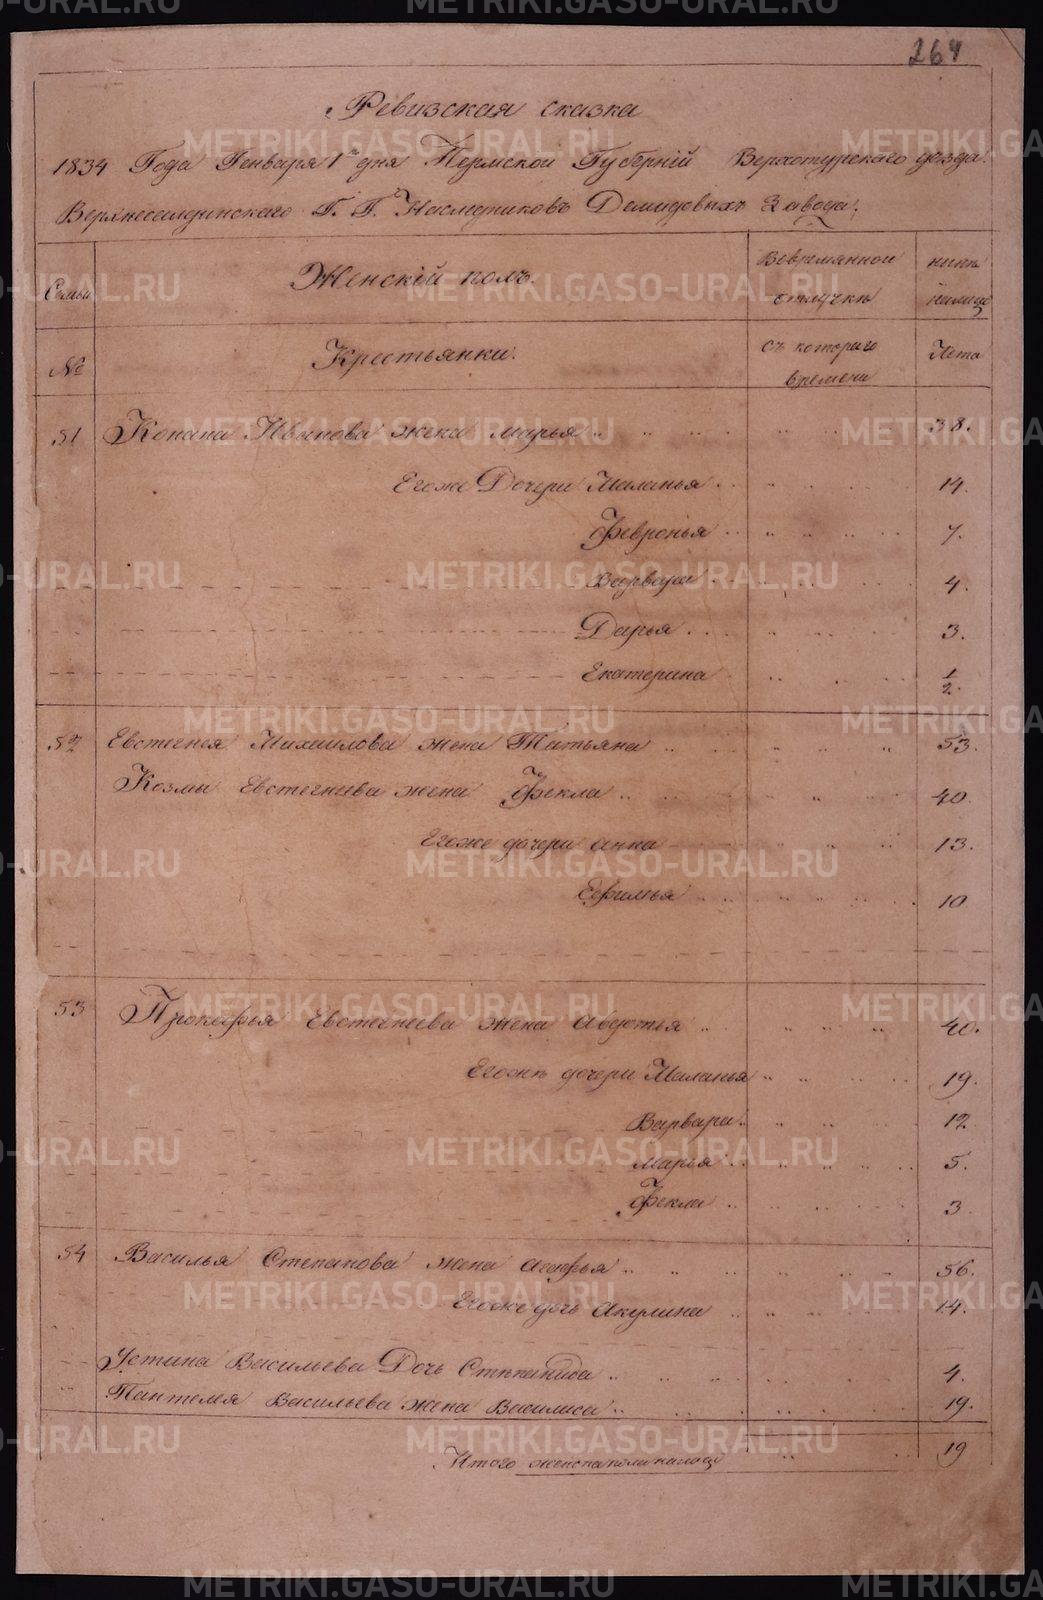 264
Ревизская сказка
1834 Года Генваря 1го дня Пермской Губерніи Верхотурскаго уезда
Верхнесалдинскаго Г. Г. Наследниковъ Демидовыхъ Завода;
Семьи
Женскій полъ.
Вовремянной отлучке
ныне налицо
№
Крестьянки.
съ котораго времени
Лета
51 Конана Иванова жена марья 38.
Егоже Дочери Маланья 14.
Февронья 7.
Варвара 4.
Дарья 3.
Екатерина 1/2.
52 Евстегнея Михаилова жена Татьяна 53.
Козмы Евстегнеева жена Фекла 40.
Егоже дочери анна 13.
Ефимья 10
53 Прокофья Евстегнеева жена Авдотья 40.
Егоже дочери Маланья 19.
Варвара 12.
марья 5.
Фекла 3
54 Василья Степанова жена агафья 56.
Егоже дочь акулина 14.
Устина Васильева Дочь Степанида 4.
Пантелея Васильева жена Василиса 19.
Итого женска пола налицо 19
METRIKI.GASO-URAL.RU